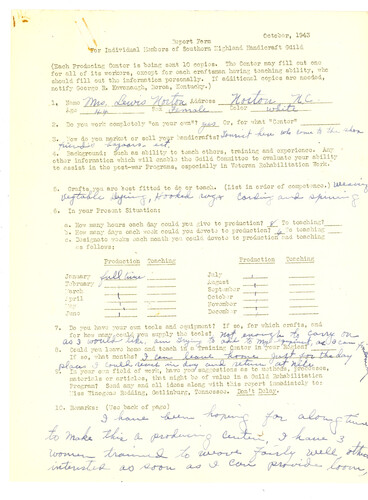 October, 1943
Report Form
For Individual Members of Southern Highland Handicraft Guild
(Each Producing Center is being sent 10 copies. The Center may fill out one
for all of its workers, except for each craftsman having teaching ability, who
should fill out the information personally. If additional copies are needed,
notify George R. Kavanaugh, Berea, Kentucky.)
1. Name Mrs. Lewis Norton Address Norton N.C.
Age 40 Sex female Color White
2. Do you work completely "on your own"? yes Or, for what "Center"
3. How do you market or sell your handicrafts? Tourist
4. Background: Such as ability to teach others, training and experience. Any
other information which will enable the Guild Committee to evaluate your ability
to assist in the post-war Programs, especially in Veteran Rehabilitation Work.
5. Crafts you are best fitted to do or teach. (List in order of competence.) Weaving
Vegtable dying, Hooked rugs Carding and spinning
6. In your Present Situation:
a. How many hours each day could you give to production? 8 To teaching?
b. How many days each week could you devote to production? 6 To teaching
c. Designate weeks each month you would devote to production and teaching
as follows:
Production Teaching Production Teaching
January full time July
February August
March September
April October
May November
June December
7. Do you have your own tools and equipment? If so, for which crafts, and
for how many could you supply the tools? not enough to carry on
as I would like. am trying to add to my equipment as I can
8. Could you leave home and teach in a Training Center in your Region?
If so, what months? I can leave home just for the day
place I could in day and return at nite
9. In your own field of work, have you suggestions as to methods, processes,
materials or articles, that might be of value in a Guild Rehabilitation
Program? Send any and all ideas along with this report immediately to:
Miss Winogene Redding, Gatlinburg, Tennessee. Don't Delay.
10. Remarks: (Use back of page)
I have been hoping for along time
to make this a producing center, I have 3
women trained to weave fairly well, others
interested as soon as I can provide loom,